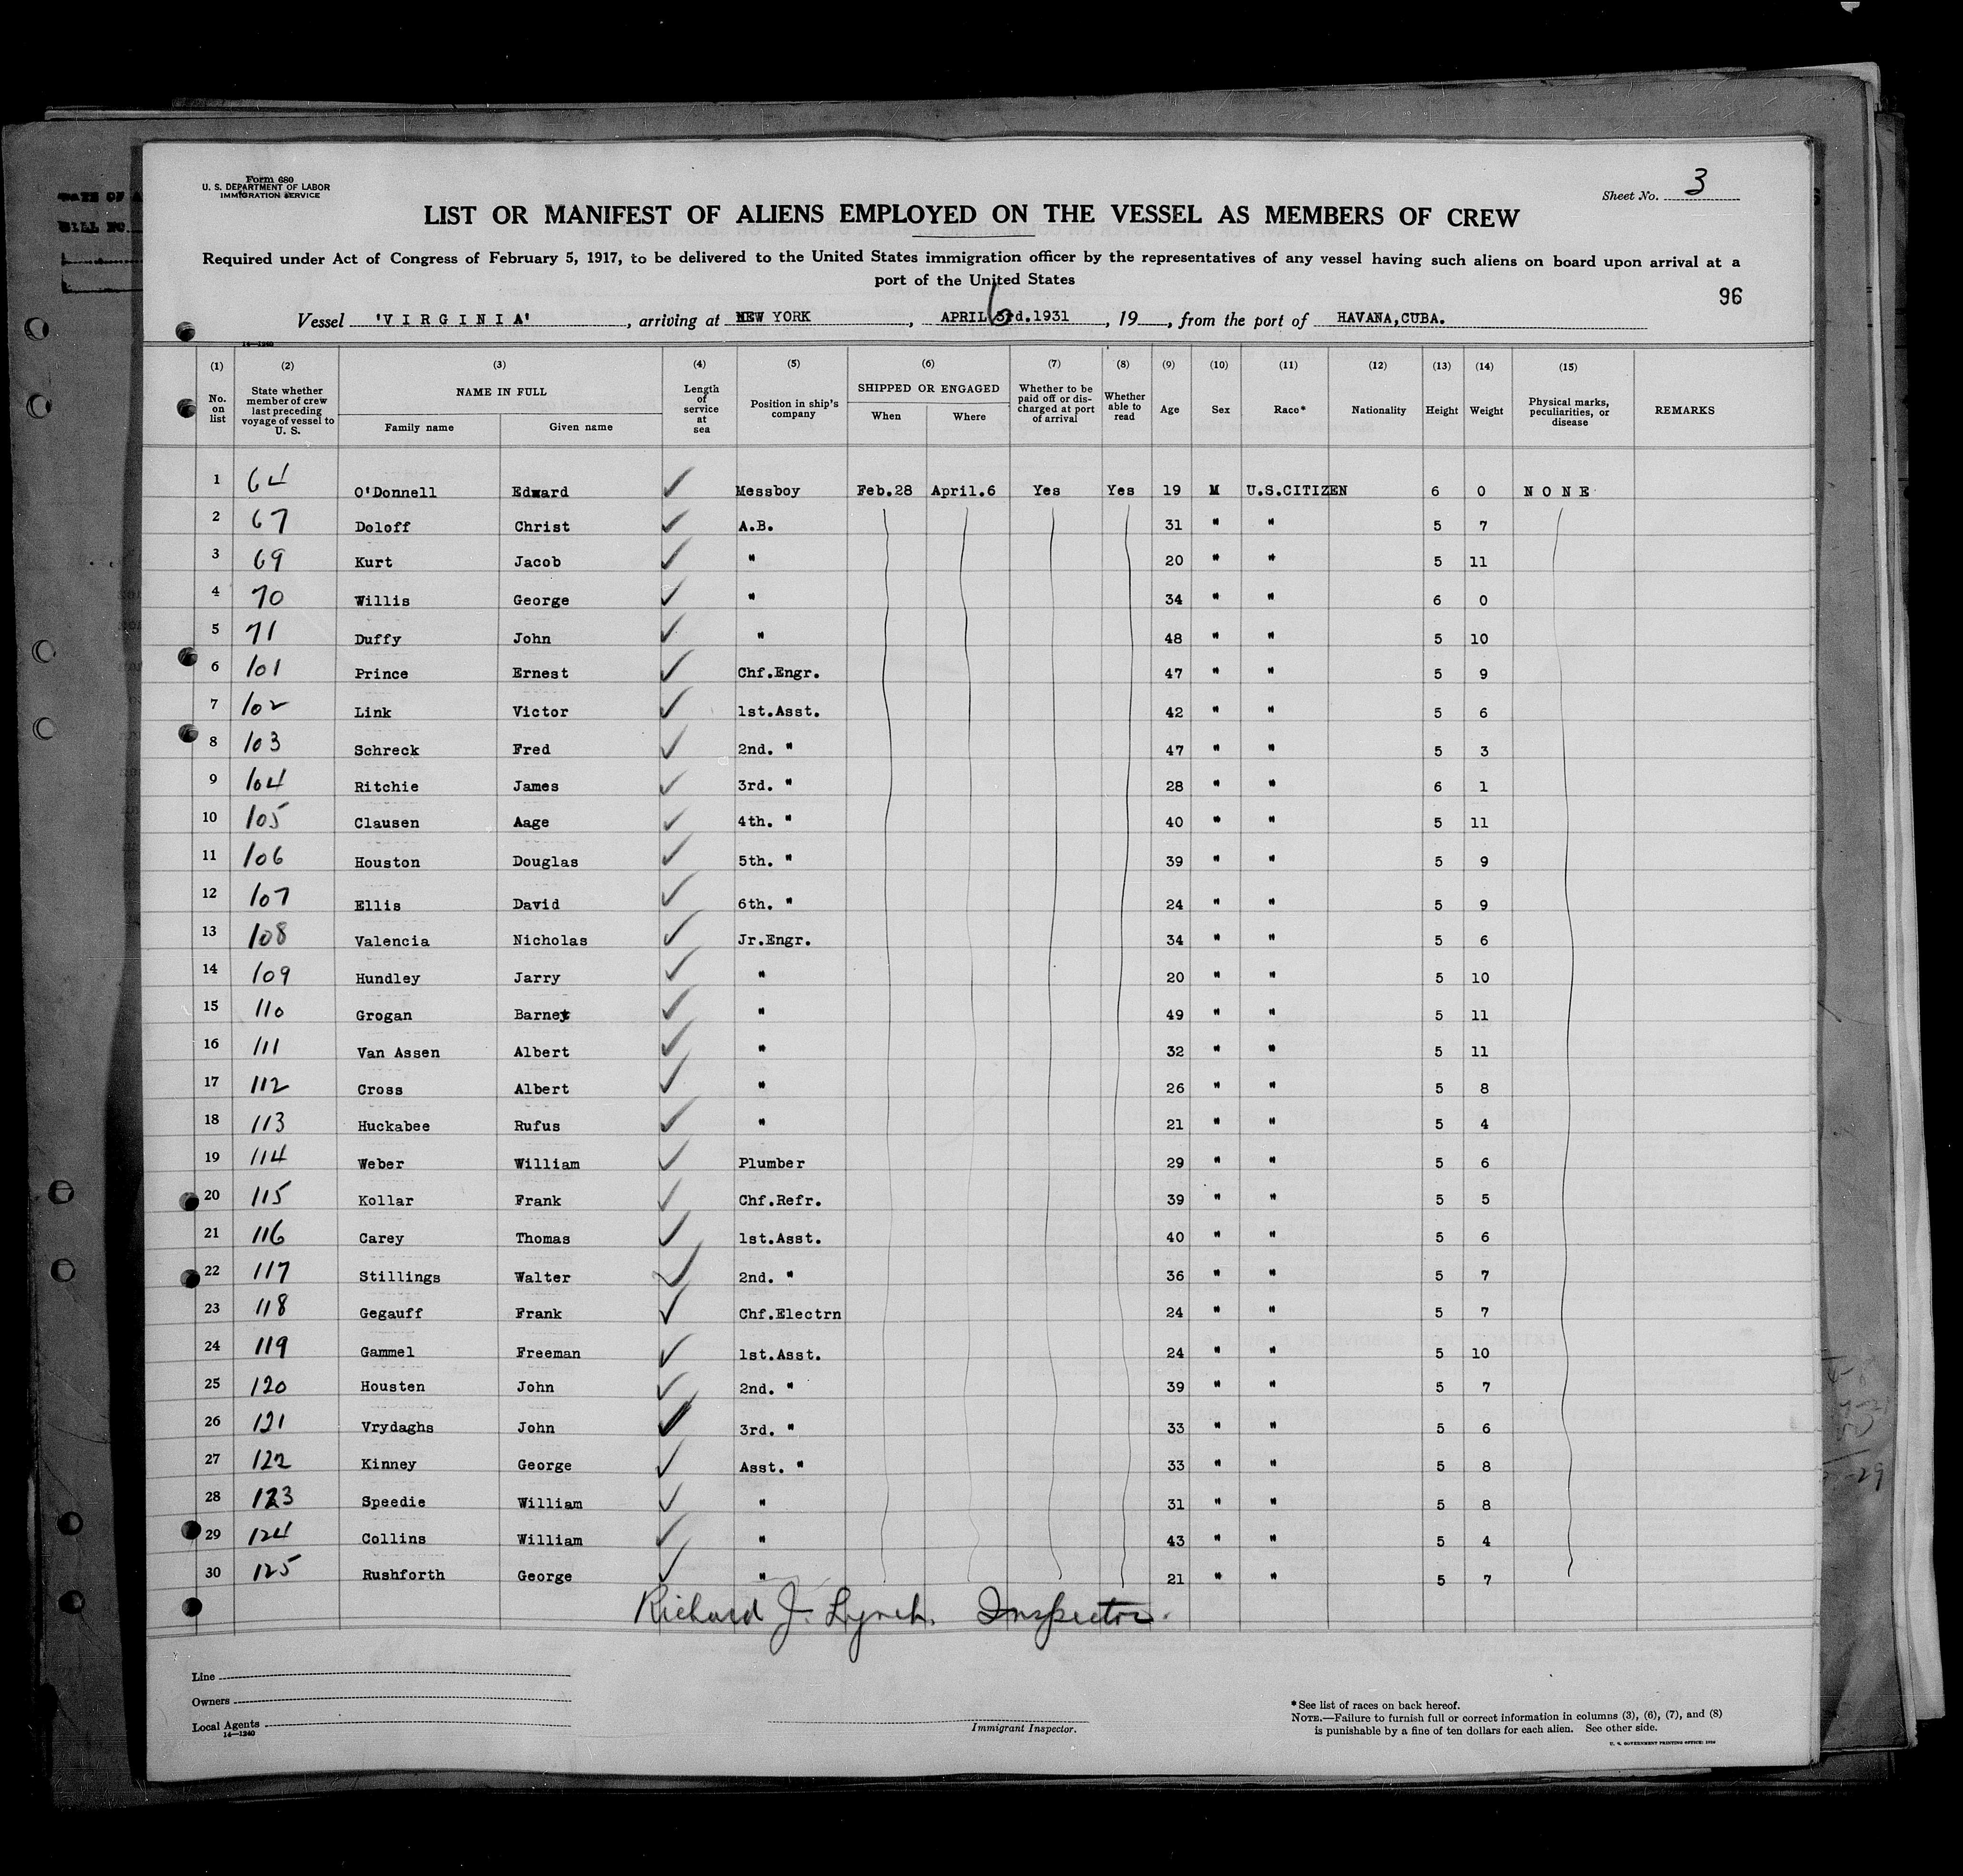 Form 680
U. S. DEPARTMENT OF LABOR
IMMIGRATION SERVICE
Sheet No. 3
LIST OR MANIFEST OF ALIENS EMPLOYED ON THE VESSEL AS MEMBERS OF CREW
Required under Act of Congress of February 5, 1917, to be delivered to the United States immigration officer by the representatives of any vessel having such aliens on board upon arrival at a
port of the United States
96
Vessel 'V I R G I N I A' , arriving at NEW YORK , APRIL 6 3rd.1931 , 19 , from the port of HAVANA,CUBA.
14—1240
(1) (2) (3) (4) (5) (6) (7) (8) (9) (10) (11) (12) (13) (14) (15)
No. on list State whether member of crew last preceding voyage of vessel to U. S. NAME IN FULL Length of service at sea Position in ship's company SHIPPED OR ENGAGED Whether to be paid off or discharged at port of arrival Whether able to read Age Sex Race* Nationality Height Weight Physical marks, peculiarities, or disease REMARKS
Family name Given name When Where
1 64 O'Donnell Edward ✓ Messboy Feb.28 April.6 Yes Yes 19 M U.S.CITIZEN 6 0 N O N E
2 67 Doloff Christ ✓ A.B. 31 " " 5 7
3 69 Kurt Jacob ✓ " 20 " " 5 11
4 70 Willis George ✓ " 34 " " 6 0
5 71 Duffy John ✓ " 48 " " 5 10
6 101 Prince Ernest ✓ Chf.Engr. 47 " " 5 9
7 102 Link Victor ✓ 1st.Asst. 42 " " 5 6
8 103 Schreck Fred ✓ 2nd. " 47 " " 5 3
9 104 Ritchie James ✓ 3rd. " 28 " " 6 1
10 105 Clausen Aage ✓ 4th. " 40 " " 5 11
11 106 Houston Douglas ✓ 5th. " 39 " " 5 9
12 107 Ellis David ✓ 6th. " 24 " " 5 9
13 108 Valencia Nicholas ✓ Jr.Engr. 34 " " 5 6
14 109 Hundley Jarry ✓ " 20 " " 5 10
15 110 Grogan Barnet ✓ " 49 " " 5 11
16 111 Van Assen Albert ✓ " 32 " " 5 11
17 112 Cross Albert ✓ " 26 " " 5 8
18 113 Huckabee Rufus ✓ " 21 " " 5 4
19 114 Weber William ✓ Plumber 29 " " 5 6
20 115 Kollar Frank ✓ Chf.Refr. 39 " " 5 5
21 116 Carey Thomas ✓ 1st.Asst. 40 " " 5 6
22 117 Stillings Walter ✓ 2nd. " 36 " " 5 7
23 118 Gegauff Frank ✓ Chf.Electrn 24 " " 5 7
24 119 Gammel Freeman ✓ 1st.Asst. 24 " " 5 10
25 120 Housten John ✓ 2nd. " 39 " " 5 7
26 121 Vrydaghs John ✓ 3rd. " 33 " " 5 6
27 122 Kinney George ✓ Asst. " 33 " " 5 8
28 123 Speedie William ✓ " 31 " " 5 8
29 124 Collins William ✓ " 43 " " 5 4
30 125 Rushforth George ✓ " 21 " " 5 7
Richard J. Lynch. Inspector.
Line
Owners
Local Agents
14—1240
Immigrant Inspector.
*See list of races on back hereof.
NOTE.—Failure to furnish full or correct information in columns (3), (6), (7), and (8)
is punishable by a fine of ten dollars for each alien. See other side.